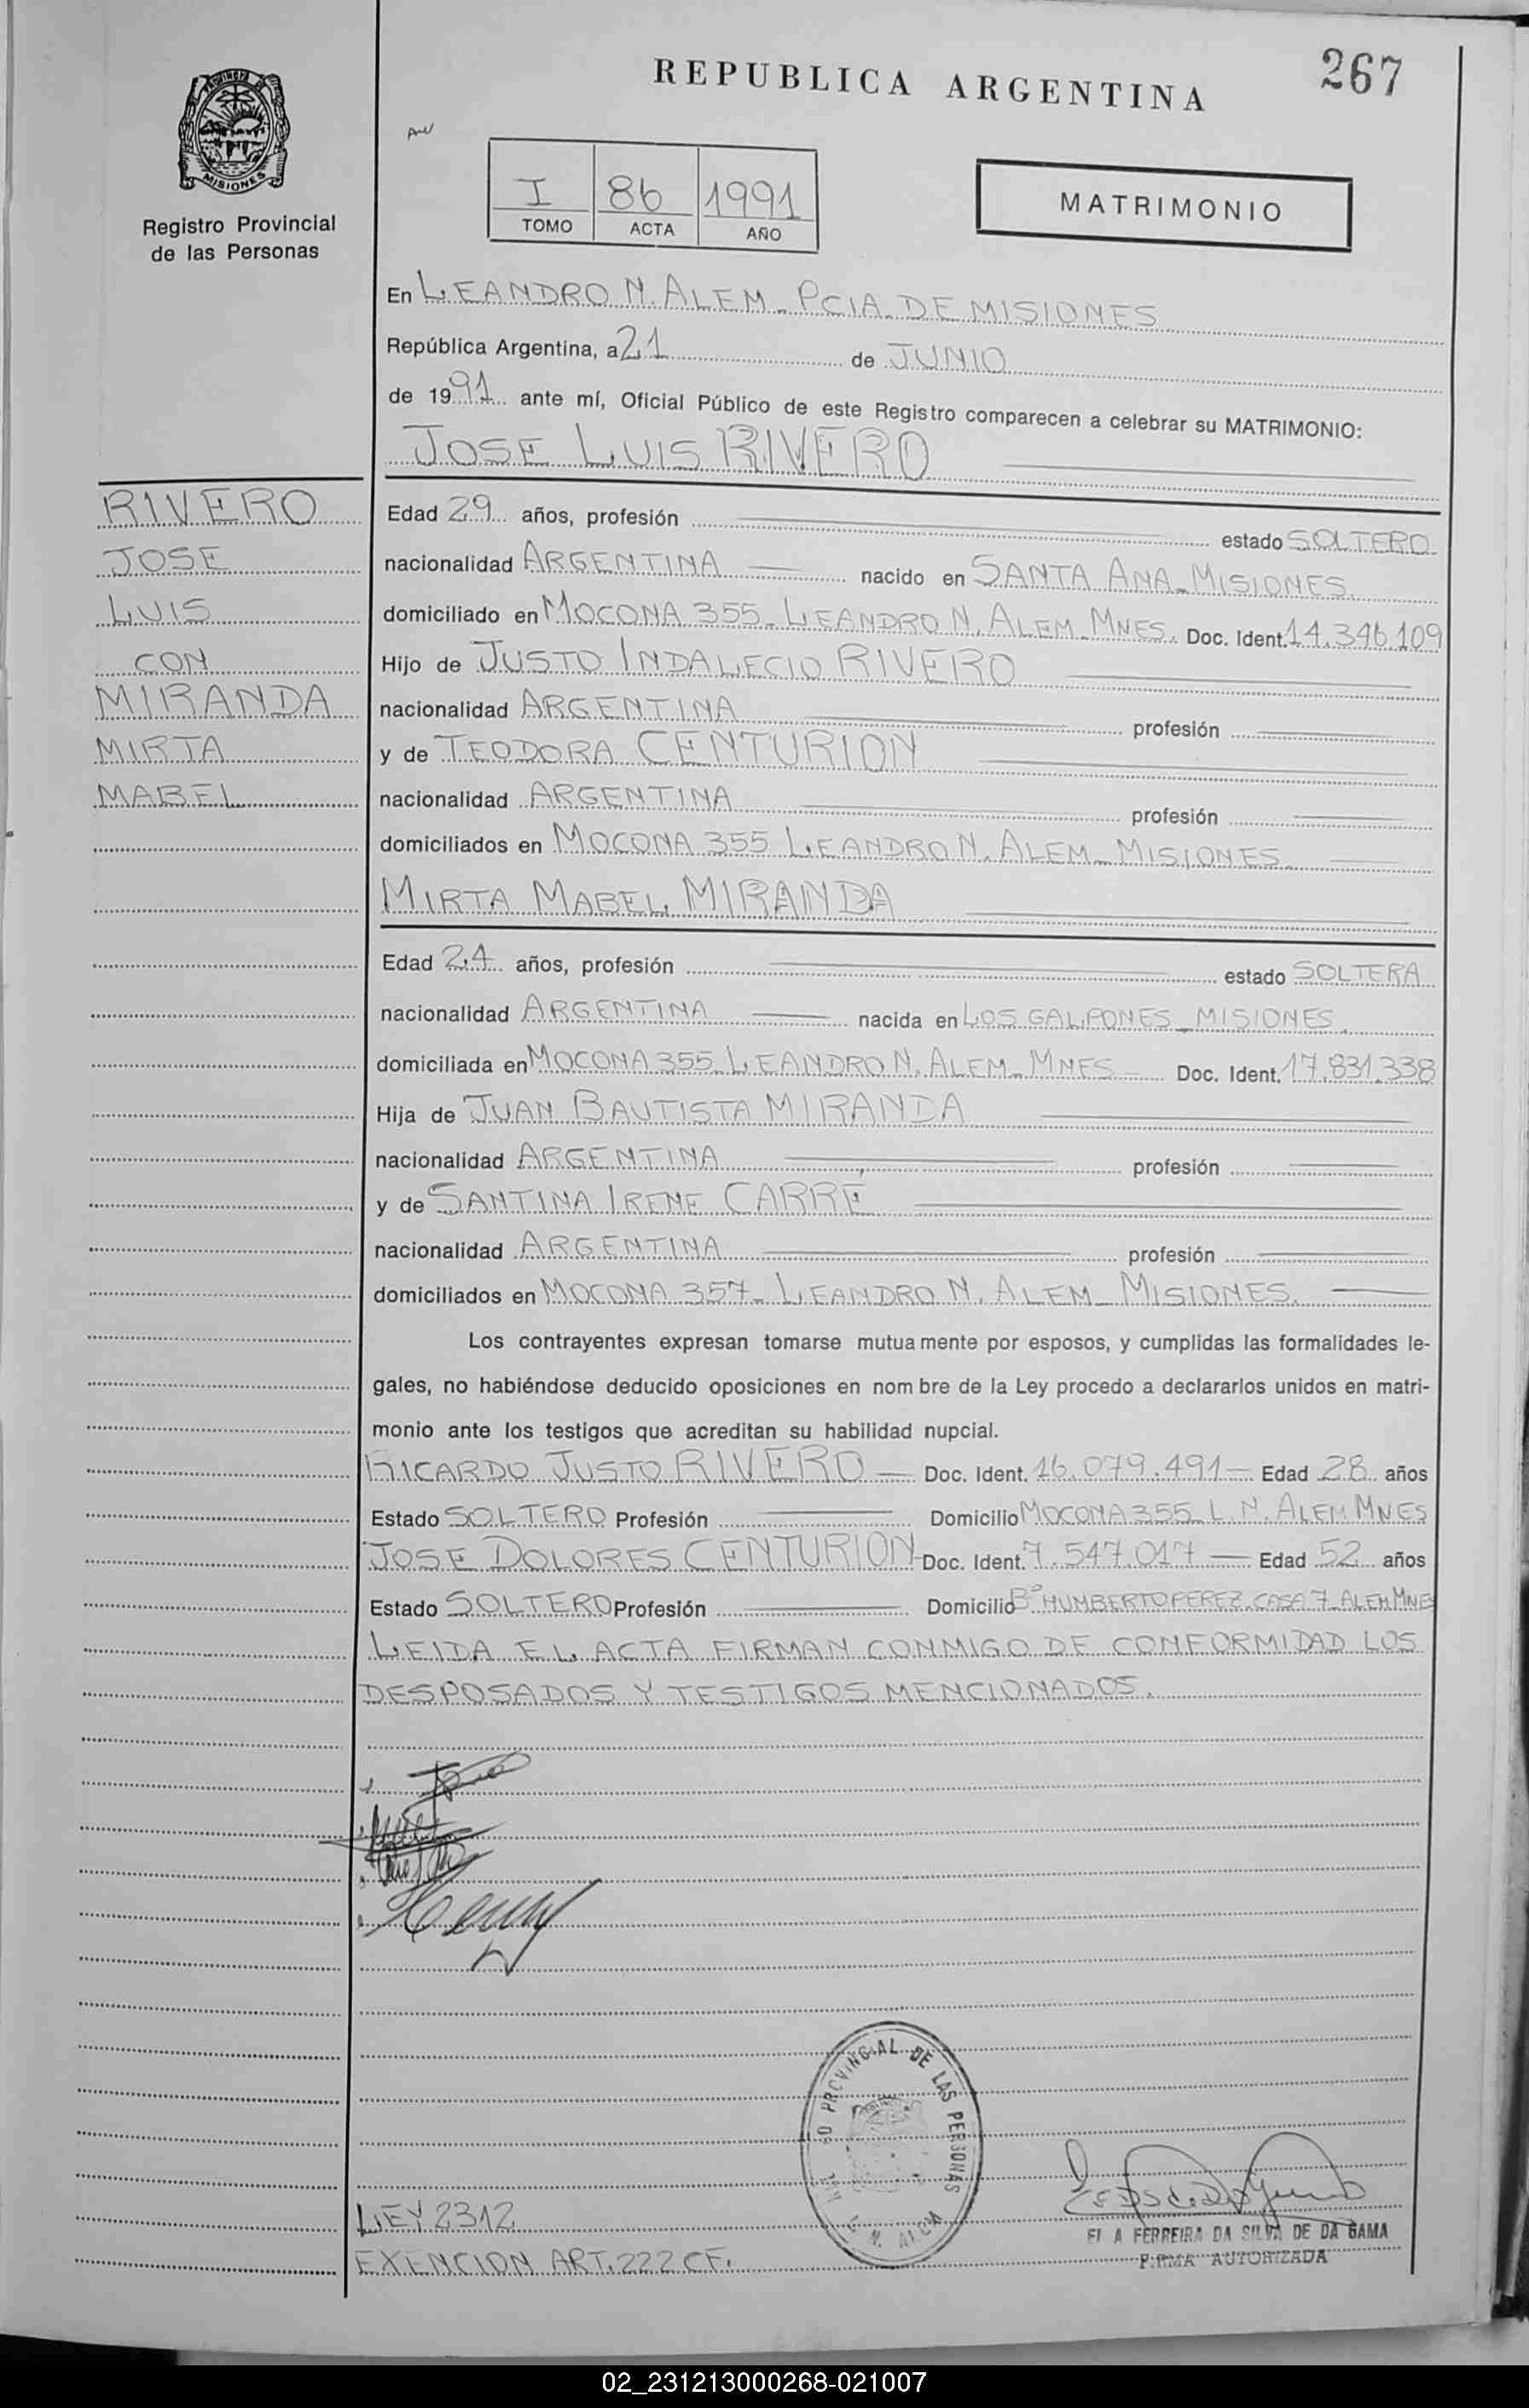 267
REPUBLICA ARGENTINA
PROVINCIA DE
MISIONES
Registro Provincial
de las Personas
I 86 1991
TOMO ACTA AÑO
MATRIMONIO
En LEANDRO N. ALEM - PCIA. DE MISIONES
República Argentina, a 21 de JUNIO
de 1991 ante mí, Oficial Público de este Registro comparecen a celebrar su MATRIMONIO:
JOSE LUIS RIVERO
RIVERO
JOSE
LUIS
CON
MIRANDA
MIRTA
MABEL
Edad 29 años, profesión estado SOLTERO
nacionalidad ARGENTINA nacido en SANTA ANA - MISIONES.
domiciliado en MOCONA 355 - LEANDRO N. ALEM - MNES. Doc. Ident. 14.346.109
Hijo de JUSTO INDALECIO RIVERO
nacionalidad ARGENTINA profesión
y de TEODORA CENTURION
nacionalidad ARGENTINA profesión
domiciliados en MOCONA 355 LEANDRO N. ALEM - MISIONES.
MIRTA MABEL MIRANDA
Edad 24 años, profesión estado SOLTERA
nacionalidad ARGENTINA nacida en LOS GALPONES - MISIONES.
domiciliada en MOCONA 355 - LEANDRO N. ALEM - MNES - Doc. Ident. 17.831.338
Hija de JUAN BAUTISTA MIRANDA
nacionalidad ARGENTINA profesión
y de SANTINA IRENE CARRÉ
nacionalidad ARGENTINA profesión
domiciliados en MOCONA 357 - LEANDRO N. ALEM - MISIONES.
Los contrayentes expresan tomarse mutuamente por esposos, y cumplidas las formalidades le-
gales, no habiéndose deducido oposiciones en nombre de la Ley procedo a declararlos unidos en matri-
monio ante los testigos que acreditan su habilidad nupcial.
RICARDO JUSTO RIVERO - Doc. Ident. 16.079.491 - Edad 28 años
Estado SOLTERO Profesión Domicilio MOCONA 355 - L. N. ALEM MNES
JOSE DOLORES CENTURION - Doc. Ident. 7.547.017 - Edad 52 años
Estado SOLTERO Profesión Domicilio Bº HUMBERTO PEREZ. CASA 7 ALEM MNES
LEIDA EL ACTA FIRMAN CONMIGO DE CONFORMIDAD LOS
DESPOSADOS Y TESTIGOS MENCIONADOS.
PROVINCIAL DE LAS PERSONAS
LEY 2312
EXENCION ART. 222 C.F.
FERREIRA DA SILVA DE DA GAMA
FIRMA AUTORIZADA
02_231213000268-021007